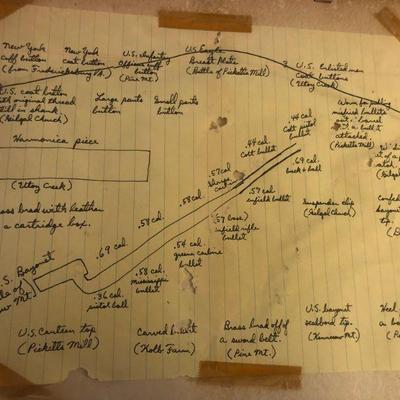 New York
cuff button
(from Fredericksburg VA.)
New York
coat button
U.S. Infantry
Officers cuff
button
(Pine Mt.)
U.S. Eagle
Breast Plate
(Battle of Picketts Mill)
3 U.S. Enlisted men
Coat buttons
(Utoy Creek)
U.S. coat button
with original thread
still in shank
(Gilgal Church)
Large pants
button
Small pants
button
Worm for pulling
misfired bullets
out barrel
bullet
attached.
(Picketts Mill)
Harmonica piece
(Utoy Creek)
.44 Cal.
Colt pistol
bullet
.44 Cal.
Colt bullet
.69 Cal.
buck & ball
.57 Cal.
.58 Cal.
.57 Cal.
Enfield bullet
Suspender clip
(Gilgal Church)
brad with leather
a cartridge box.
.58 Cal.
(.57 base)
Enfield rifle
bullet
.54 Cal.
green carbine
bullet
.69 Cal.
.58 Cal.
Mississippi
bullet
.36 Cal.
pistol ball
U.S. Bayonet
Mt.)
U.S. Canteen top
(Picketts Mill)
Carved bullet
(Kolb Farm)
Brass hook off of
a sword belt.
(Pine Mt.)
U.S. bayonet
scabbard tip.
(Kennesaw Mt.)
Heel
a bo